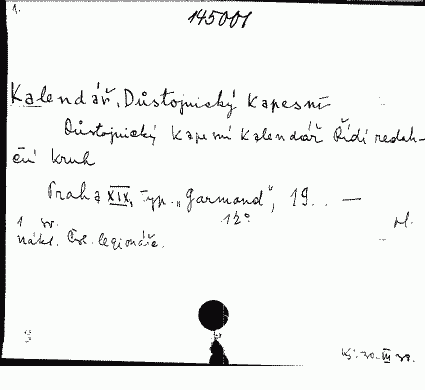 1.
145001
Kalendář, Důstojnický kapesní
Důstojnický kapesní kalendář Řídí redak-
ční kruh
Praha XIX, Typ. „Garmond", 19 . . —
12°
1 sv.
nákl. Čsl. legionáře.
30. III 38.